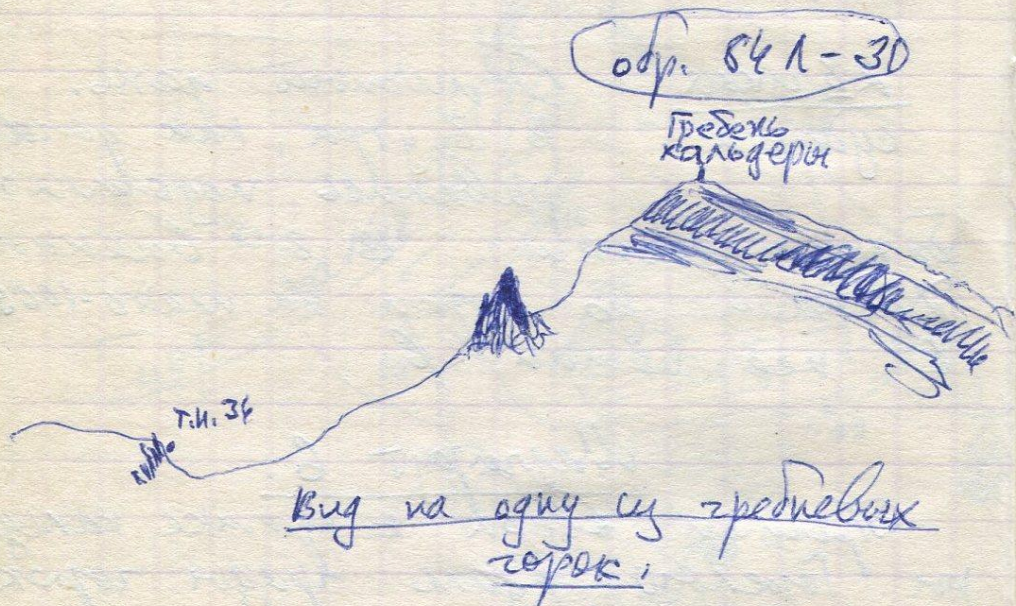 обр. 84 Л-30
Гребень
кальдеры
Т.Н. 34
Вид на одну из гребневых
горок.